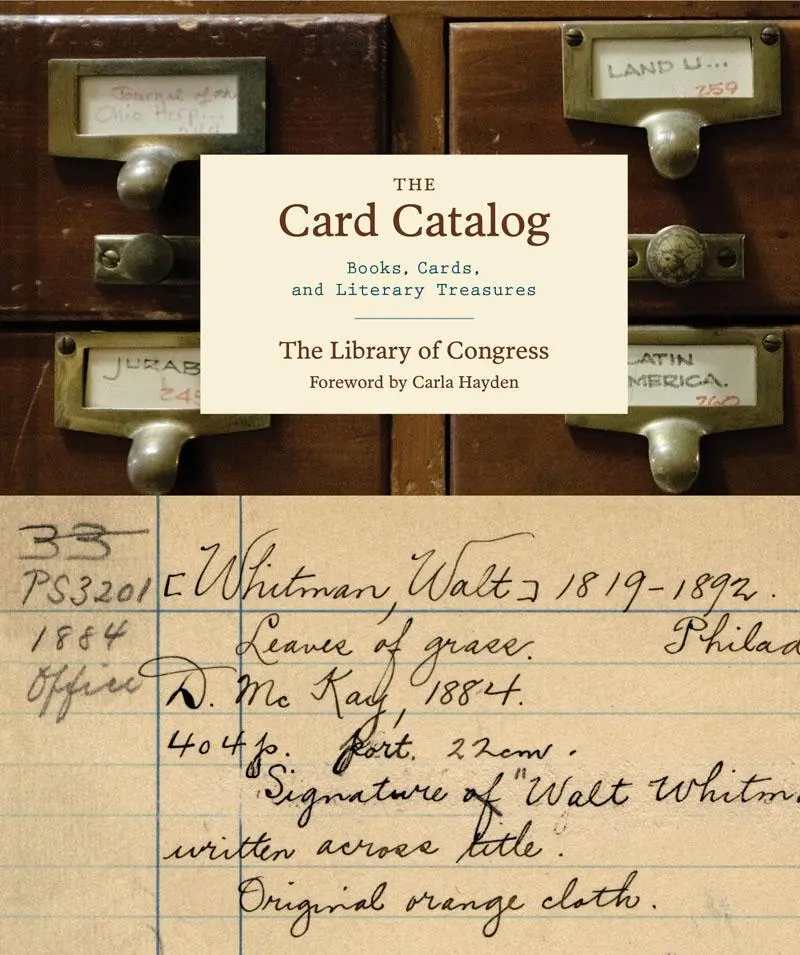 Journal of the
Ohio Herp...
LAND U...
259
THE
Card Catalog
Books, Cards,
and Literary Treasures
The Library of Congress
Foreword by Carla Hayden
JURAB
245
ATIN
MERICA.
260
33
PS3201 [Whitman, Walt] 1819-1892.
1884 Leaves of grass. Philad
Office D. McKay, 1884.
404 p. port. 22cm.
Signature of "Walt Whitm
written across title.
Original orange cloth.